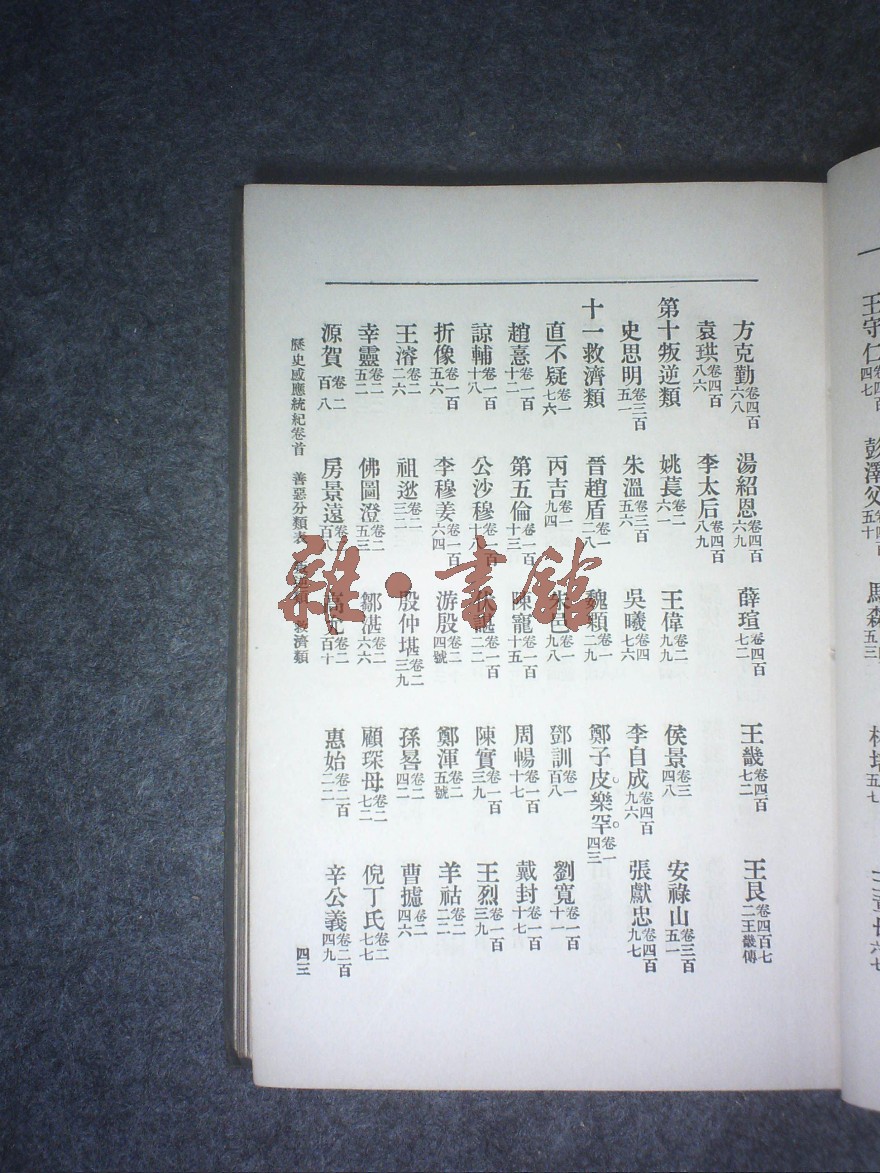 方克勤卷四百六八 湯紹恩卷四百六九 薛瑄卷四百七二 王畿卷四百七二 王艮卷四百七二王畿傳
袁珙卷四百八六 李太后卷四百八九
第十叛逆類 姚萇卷二六一 王偉卷二九九 侯景卷三四八 安祿山卷三百五一
史思明卷三百五一 朱溫卷三百五六 吳曦卷四七六 李自成卷四百九六 張獻忠卷四百九七
十一救濟類 晉趙盾卷一二八 魏顆卷一二九 鄭子皮。樂罕。卷一四三
直不疑卷一七六 丙吉卷一九四 朱邑卷一九八 鄧訓卷一百八 劉寬卷一百十一
趙憙卷一百十二 第五倫卷一百十三 陳寵卷一百十五 周暢卷一百十七 戴封卷一百十七
諒輔卷一百十八 公沙穆卷一百十八 伏諶卷一百二二 陳實卷一百三九 王烈卷一百三九
折像卷一百五六 李穆姜卷一百六四 游殷卷二四號 鄭渾卷二五號 羊祜卷二二二
王濬卷二二六 祖逖卷二三二 殷仲堪卷二三九 孫晷卷二四二 曹攄卷二四六
幸靈卷二五二 佛圖澄卷二五三 鄒湛卷二六六 顧琛母卷二七二 倪丁氏卷二七七
源賀卷二百八 房景遠卷二百八 高允卷二百十 惠始卷二百二二 辛公義卷二百四九
歷史感應統紀卷首 善惡分類表 救濟類 四三
雜·書館
王守仁卷四百四七 彭澤父卷四百五十 馬森